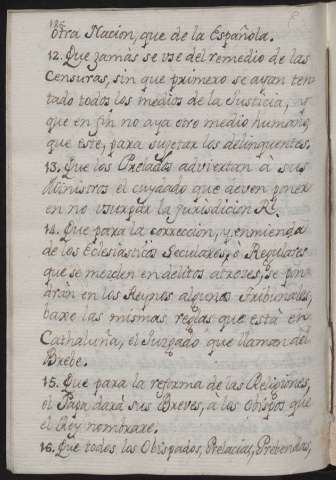 otra Nacion, que de la Española.
12. Que jamàs se use del remedio de las
Censuras, sin que primero se ayan ten-
tado todos los medios de la Justicia, y
que en fin no aya otro medio humano
que este, para sujetar los delinquentes.
13. Que los Prelados adviertan à sus
Ministros el cuydado que deven poner
en no usurpar la jurisdicion Rl.
14. Que para la correccion, y enmienda
de los Eclesiasticos Seculares, ò Regulares
que se mezclen en delitos atrozes, se pon-
dràn en los Reynos algunos Tribunales,
baxo las mismas reglas que està en
Cathaluña, el Juzgado que llaman del
Brebe.
15. Que para la reforma de las Religiones,
el Papa darà sus Breves, à los Obispos que
el Rey nombrare.
16. Que todos los Obispados, Prelacias, Prebendas,